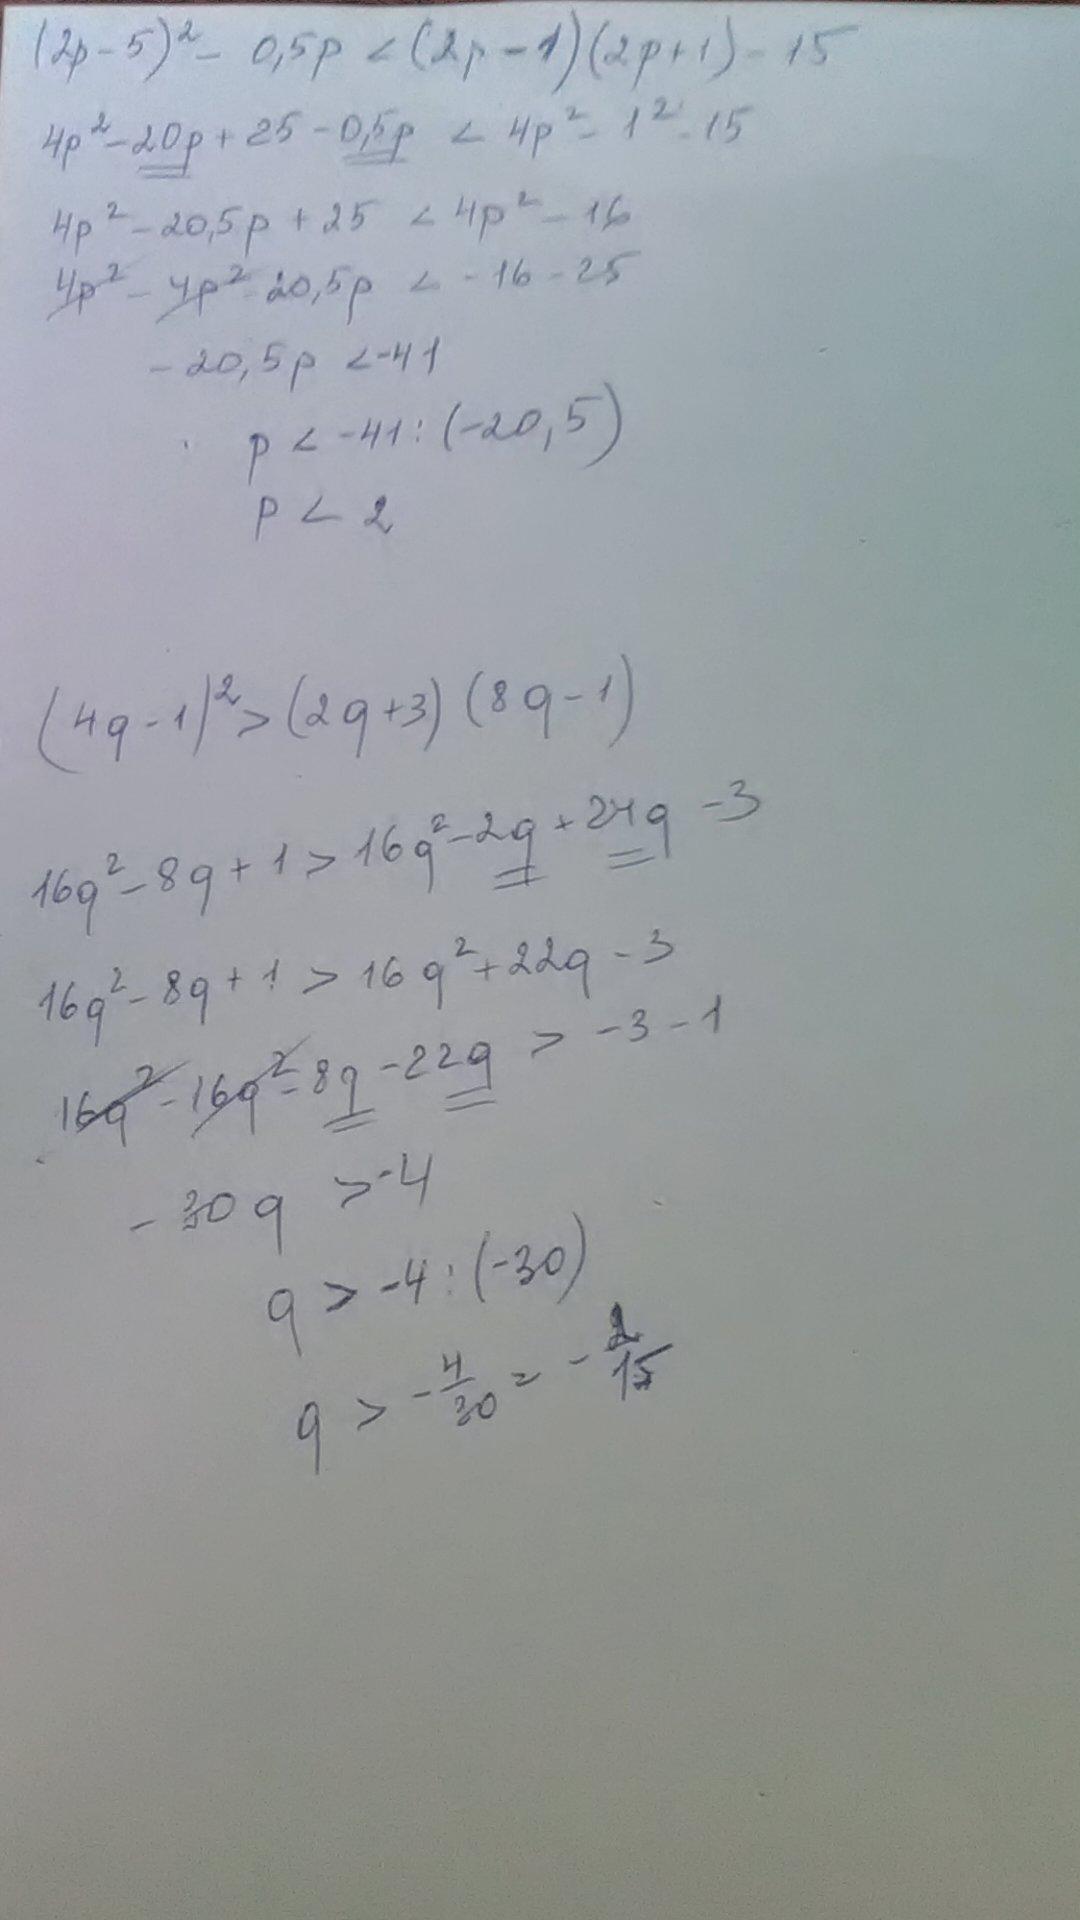 (2p-5)² - 0,5p < (2p-1)(2p+1) - 15
4p² - 20p + 25 - 0,5p < 4p² - 1² - 15
4p² - 20,5p + 25 < 4p² - 16
4p² - 4p² - 20,5p < -16 - 25
-20,5p < -41
p < -41 : (-20,5)
p < 2
(4q-1)² > (2q+3)(8q-1)
16q² - 8q + 1 > 16q² - 2q + 24q - 3
16q² - 8q + 1 > 16q² + 22q - 3
16q² - 16q² - 8q - 22q > -3 - 1
-30q > -4
q > -4 : (-30)
q > -4/30 = -2/15